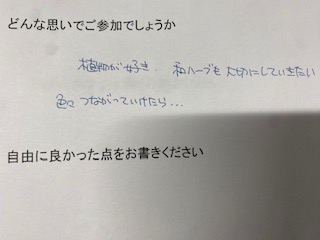 どんな思いでご参加でしょうか
植物が好き 和ハーブも大切にしていきたい
色々つながっていけたら…
自由に良かった点をお書きください